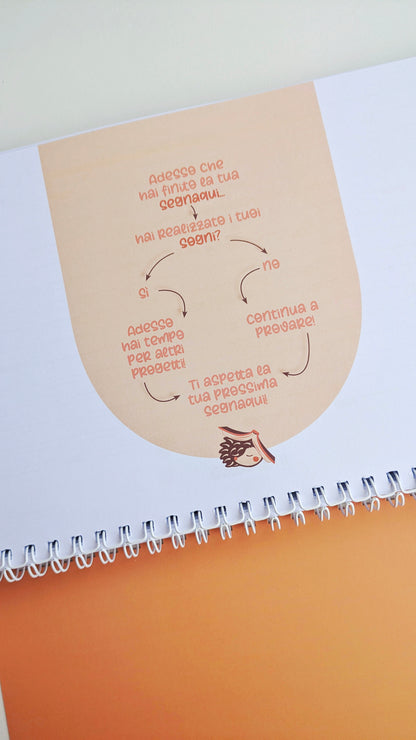 Adesso che
hai finito la tua
segnaqui...
hai realizzato i tuoi
sogni?
si
no
Adesso
hai tempo
per altri
progetti!
Continua a
provare!
Ti aspetta la
tua prossima
segnaqui!